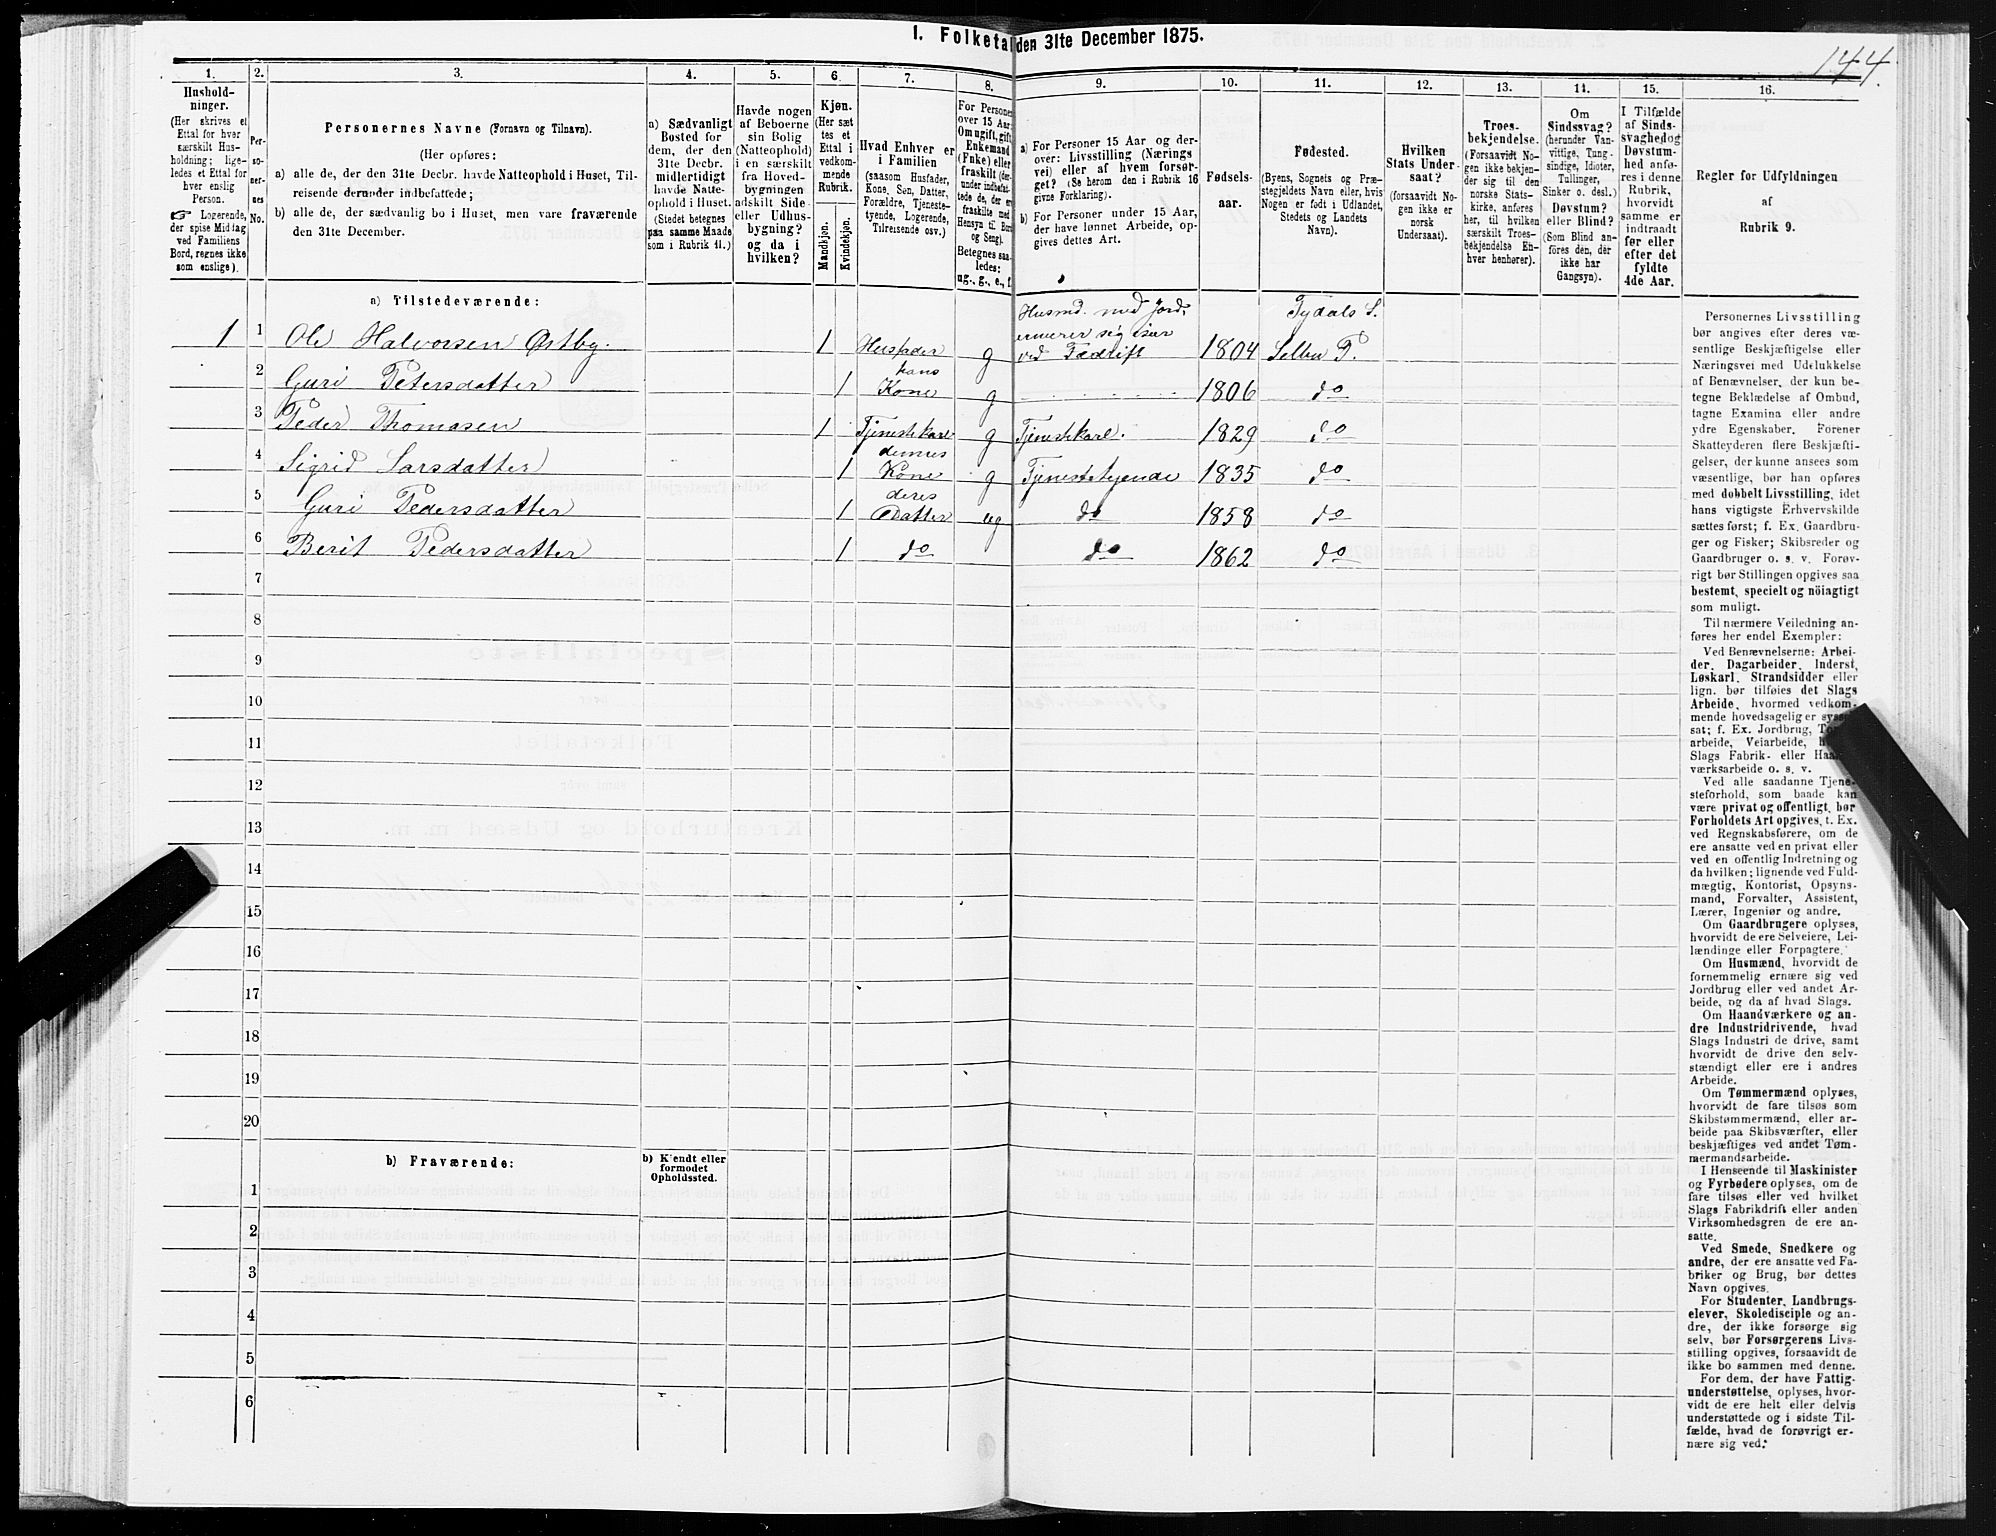 I. Folketal den 31te December 1875.
144.
1.
Hushold-
ninger.
(Her skrives et
Ettal for hver
særskilt Hus-
holdning; lige-
ledes et Ettal for
hver enslig
Person.
☞ Logerende,
der spise Middag
ved Familiens
Bord, regnes ikke
som enslige).
2.
Per-
so-
ner-
nes
No.
3.
Personernes Navne (Fornavn og Tilnavn).
(Her opføres:
a) alle de, der den 31te Decbr. havde Natteophold i Huset, Til-
reisende derunder indbefattede;
b) alle de, der sædvanlig bo i Huset, men vare fraværende
den 31te December.
4.
a) Sædvanligt
Bosted for
dem, der den
31te Decbr.
midlertidigt
havde Natte-
ophold i Huset.
(Stedet betegnes
paa samme Maade
som i Rubrik 11.)
5.
Havde nogen
af Beboerne
sin Bolig
(Natteophold)
i en særskilt
fra Hoved-
bygningen
adskilt Side-
eller Udhus-
bygning?
og da i
hvilken?
6.
Kjøn.
(Her sæt
tes et
Ettal i
vedkom-
mende
Rubrik.
Mandkjøn.
Kvindekjøn.
7.
Hvad Enhver er
i Familien
(saasom Husfader,
Kone, Søn, Datter,
Forældre, Tjeneste-
tyende, Logerende,
Tilreisende osv.)
8.
For Personer
over 15 Aar:
Om ugift, gift,
Enkemand
(Enke) eller
fraskilt (der-
under indbefat-
tede de, der ere
fraskilte med
Hensyn til Bord
og Seng).
Betegnes saa-
ledes:
ug., g., e., f.
9.
a) For Personer 15 Aar og der-
over: Livsstilling (Nærings
vei) eller af hvem forsør-
get? (Se herom den i Rubrik 16
givne Forklaring).
b) For Personer under 15 Aar,
der have lønnet Arbeide, op-
gives dettes Art.
10.
Fødsels-
aar.
11.
Fødested.
(Byens, Sognets og Præ-
stegjeldets Navn eller, hvis
Nogen er født i Udlandet,
Stedets og Landets
Navn).
12.
Hvilken
Stats Under-
saat?
(forsaavidt No-
gen ikke er
norsk
Undersaat).
13.
Troes-
bekjendelse.
(Forsaavidt No-
gen ikke bekjen-
der sig til den
norske Stats-
kirke, anføres
her, til hvilken
særskilt Troes-
bekjendelse En-
hver henhører).
14.
Om
Sindssvag?
(herunder Van-
vittige, Tung-
sindige, Idioter,
Tullinger,
Sinker o. desl.)
Døvstum?
eller Blind?
(Som Blind an-
føres den, der
ikke har
Gangsyn).
15.
I Tilfælde
af Sinds-
svaghed og
Døvstum-
hed anfø-
res i denne
Rubrik,
hvorvidt
samme er
indtraadt
før eller
efter det
fyldte
4de Aar.
16.
Regler for Udfyldningen
af
Rubrik 9.
a) Tilstedeværende:
1 1 Ole Halvorsen Østby. 1 Husfader g Husmd. med Jord, ernærer sig især ved Fædrift 1804 Tydals S. Selbu P.
2 Guri Petersdatter 1 hans Kone g 1806 do
3 Peder Thomasen 1 Tjenestekarl g Tjenestekarl. 1829 do
4 Sigrid Larsdatter 1 dennes Kone g Tjenestetyende 1835 do
5 Guri Pedersdatter 1 deres Datter ug do 1858 do
6 Berit Pedersdatter 1 do do 1862 do
7
8
9
10
11
12
13
14
15
16
17
18
19
20
b) Fraværende:
b) Kjendt eller
formodet
Opholdssted.
1
2
3
4
5
6
Personernes Livsstilling
bør angives efter deres væ-
sentlige Beskjæftigelse eller
Næringsvei med Udelukkelse
af Benævnelser, der kun be-
tegne Beklædelse af Ombud,
tagne Examina eller andre
ydre Egenskaber. Forener
Skatteyderen flere Beskjæfti-
gelser, der kunne ansees som
væsentlige, bør han opføres
med dobbelt Livsstilling, idet
hans vigtigste Erhvervskilde
sættes først; f. Ex. Gaardbru-
ger og Fisker; Skibsreder og
Gaardbruger o. s. v. Forøv-
rigt bør Stillingen opgives saa
bestemt, specielt og nöiagtigt
som muligt.
Til nærmere Veiledning an-
føres her endel Exempler:
Ved Benævnelserne: Arbei-
der, Dagarbeider, Inderst,
Løskarl, Strandsidder eller
lign. bør tilføies det Slags
Arbeide, hvormed vedkom-
mende hovedsagelig er syssel-
sat; f. Ex. Jordbrug,
arbeide, Veiarbeide,
Slags Fabrik- eller
værksarbeide o. s. v.
Ved alle saadanne Tjene-
steforhold, som baade kan
være privat og offentligt, bør
Forholdets Art opgives, t. Ex.
ved Regnskabsførere, om de
ere ansatte ved en privat eller
ved en offentlig Indretning og
da hvilken; lignende ved Fuld-
mægtig, Kontorist, Opsyns-
mand, Forvalter, Assistent,
Lærer, Ingeniør og andre.
Om Gaardbrugere oplyses,
hvorvidt de ere Selveiere, Lei-
lændinge eller Forpagtere.
Om Husmænd, hvorvidt de
fornemmelig ernære sig ved
Jordbrug eller ved andet Ar-
beide, og da af hvad Slags.
Om Haandværkere og an-
dre Industridrivende, hvad
Slags Industri de drive, samt
hvorvidt de drive den selv-
stændigt eller ere i andres
Arbeide.
Om Tømmermænd oplyses,
hvorvidt de fare tilsøs som
Skibstømmermænd, eller ar-
beide paa Skibsværfter, eller
beskjæftiges ved andet Tøm-
mermandsarbeide.
I Henseende til Maskinister
og Fyrbødere oplyses, om de
fare tilsøs eller ved hvilket
Slags Fabrikdrift eller anden
Virksomhedsgren de ere an-
satte.
Ved Smede, Snedkere og
andre, der ere ansatte ved Fa-
briker og Brug, bør dettes
Navn opgives.
For Studenter, Landbrugs-
elever, Skoledisciple og an-
dre, der ikke forsørge sig
selv, bør Forsørgerens Livs-
stilling opgives, forsaavidt de
ikke bo sammen med denne.
For dem, der have Fattig-
understøttelse, oplyses, hvor-
vidt de ere helt eller delvis
understøttede og i sidste Til-
fælde, hvad de forøvrigt er-
nære sig ved.